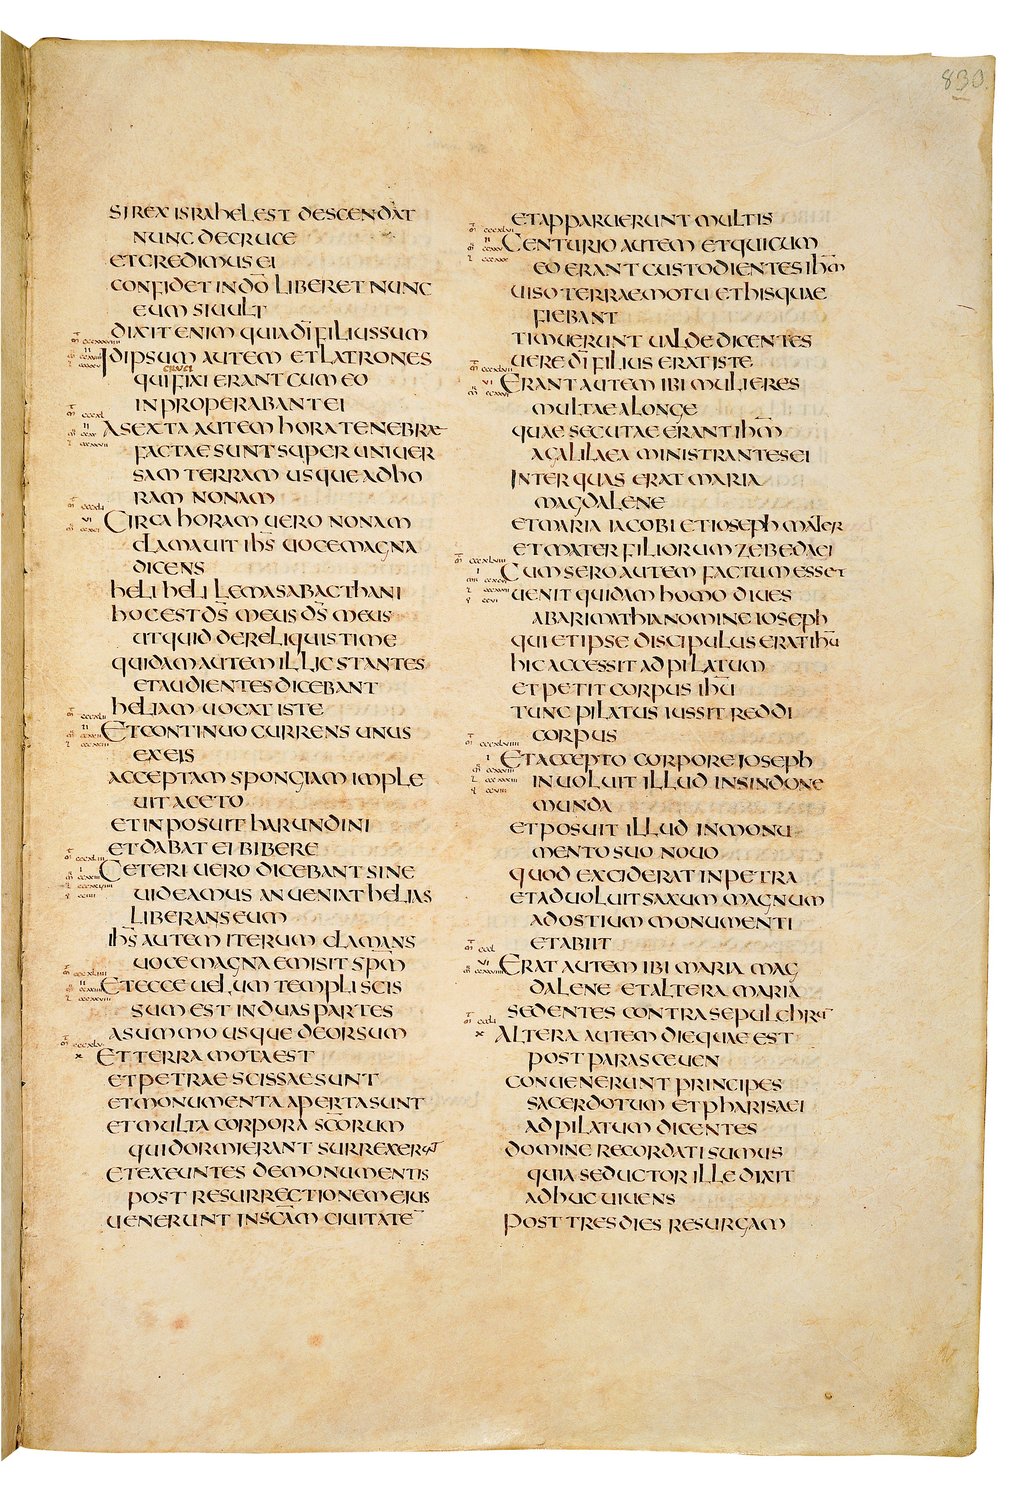 830.
SI REX ISRAHEL EST DESCENDAT
NUNC DE CRUCE
ET CREDIMUS EI
CONFIDET IN DŌO LIBERET NUNC
EUM SI UULT
DIXIT ENIM QUIA DĪ FILIUS SUM
IDIPSUM AUTEM ET LATRONES
CRUCI
QUI FIXI ERANT CUM EO
INPROPERABANT EI
A SEXTA AUTEM HORA TENEBRAE
FACTAE SUNT SUPER UNIUER
SAM TERRAM USQUE AD HO
RAM NONAM
CIRCA HORAM UERO NONAM
CLAMAUIT IH̄S UOCE MAGNA
DICENS
HELI HELI LEMA SABACTHANI
HOC EST D̄S MEUS D̄S MEUS
UT QUID DERELIQUISTI ME
QUIDAM AUTEM ILLIC STANTES
ET AUDIENTES DICEBANT
HELIAM UOCAT ISTE
ET CONTINUO CURRENS UNUS
EX EIS
ACCEPTAM SPONGIAM IMPLE
UIT ACETO
ET INPOSUIT HARUNDINI
ET DABAT EI BIBERE
CETERI UERO DICEBANT SINE
UIDEAMUS AN UENIAT HELIAS
LIBERANS EUM
IH̄S AUTEM ITERUM CLAMANS
UOCE MAGNA EMISIT SP̄M
ET ECCE UELUM TEMPLI SCIS
SUM EST IN DUAS PARTES
A SUMMO USQUE DEORSUM
ET TERRA MOTA EST
ET PETRAE SCISSAE SUNT
ET MONUMENTA APERTA SUNT
ET MULTA CORPORA SC̄ORUM
QUI DORMIERANT SURREXERUNT
ET EXEUNTES DE MONUMENTIS
POST RESURRECTIONEM EIUS
UENERUNT IN SC̄AM CIUITATE¯
ET APPARUERUNT MULTIS
CENTURIO AUTEM ET QUI CUM
EO ERANT CUSTODIENTES IH̄M
UISO TERRAEMOTU ET HIS QUAE
FIEBANT
TIMUERUNT UALDE DICENTES
UERE DĪ FILIUS ERAT ISTE
ERANT AUTEM IBI MULIERES
MULTAE A LONGE
QUAE SECUTAE ERANT IH̄M
A GALILAEA MINISTRANTES EI
INTER QUAS ERAT MARIA
MAGDALENE
ET MARIA IACOBI ET IOSEPH MATER
ET MATER FILIORUM ZEBEDAEI
CUM SERO AUTEM FACTUM ESSET
UENIT QUIDAM HOMO DIUES
AB ARIMATHIA NOMINE IOSEPH
QUI ET IPSE DISCIPULUS ERAT IH̄U
HIC ACCESSIT AD PILATUM
ET PETIT CORPUS IH̄U
TUNC PILATUS IUSSIT REDDI
CORPUS
ET ACCEPTO CORPORE IOSEPH
INUOLUIT ILLUD IN SINDONE
MUNDA
ET POSUIT ILLUD IN MONU
MENTO SUO NOUO
QUOD EXCIDERAT IN PETRA
ET ADUOLUIT SAXUM MAGNUM
AD OSTIUM MONUMENTI
ET ABIIT
ERAT AUTEM IBI MARIA MAG
DALENE ET ALTERA MARIA
SEDENTES CONTRA SEPULCHRUM
ALTERA AUTEM DIE QUAE EST
POST PARASCEUEN
CONUENERUNT PRINCIPES
SACERDOTUM ET PHARISAEI
AD PILATUM DICENTES
DOMINE RECORDATI SUMUS
QUIA SEDUCTOR ILLE DIXIT
ADHUC UIUENS
POST TRES DIES RESURGAM